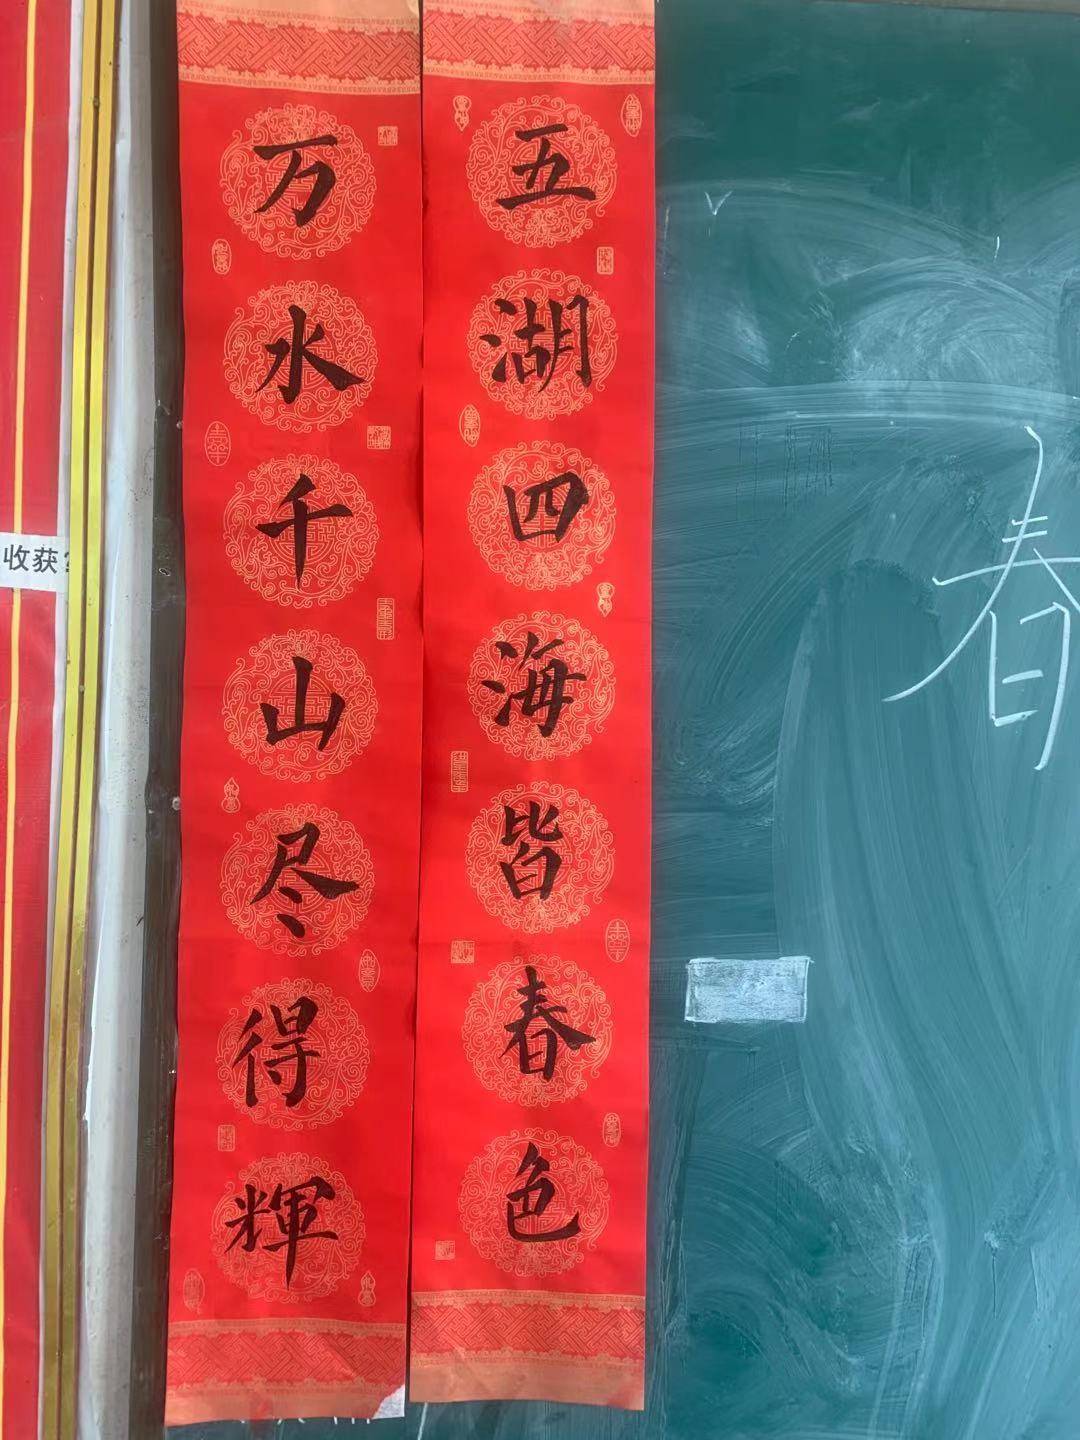 五湖四海皆春色
万水千山尽得輝
春
收获